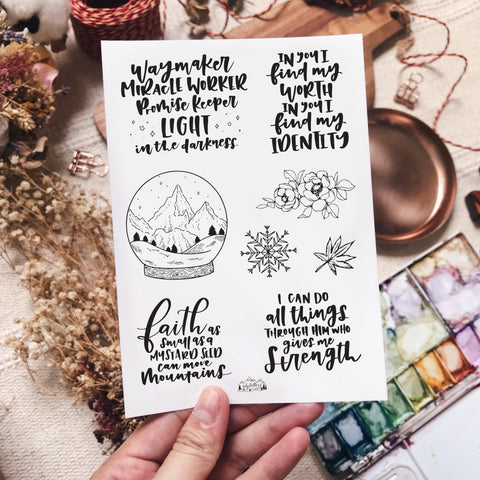 Waymaker
MIRACLE WORKER
Promise Keeper
LIGHT
in the darkness
IN YOU I
find my
WORTH
IN YOU I
find my
IDENTITY
faith as
small as a
MUSTARD SEED
can move
Mountains
I CAN DO
all things
THROUGH HIM WHO
gives me
Strength